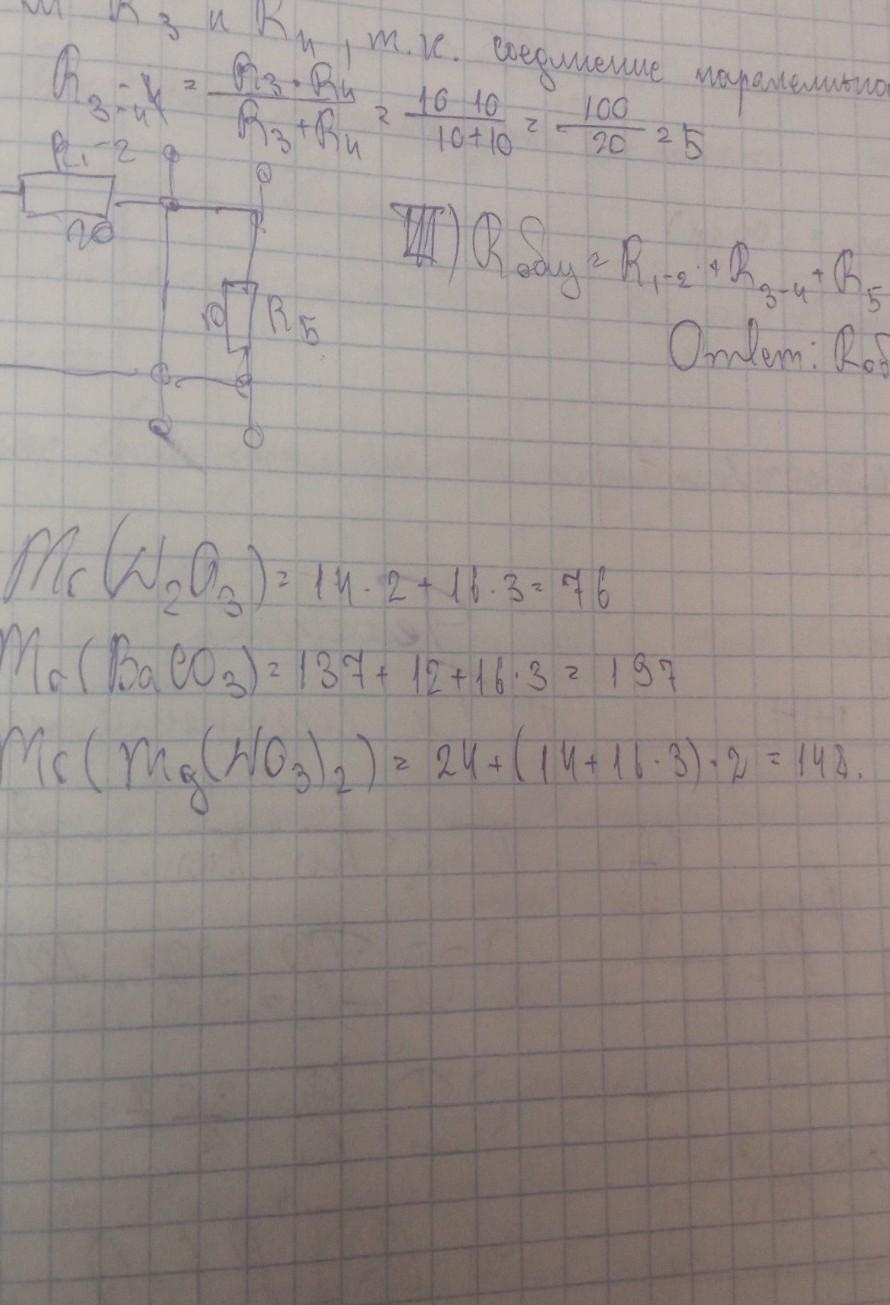 R₃ и R₄, т.к. соединение паралельно
R₃₋₄ = R₃ · R₄ / R₃ + R₄ = 10 10 / 10+10 = 100 / 20 = 5
R₁-2
20
10 R₅
III) Rобщ = R₁₋₂ + R₃₋₄ + R₅
Ответ: Rоб
Mr(N₂O₃) = 14 · 2 + 16 · 3 = 76
Mr(BaCO₃) = 137 + 12 + 16 · 3 = 197
Mr(Mg(NO₃)₂) = 24 + (14 + 16 · 3) · 2 = 148.